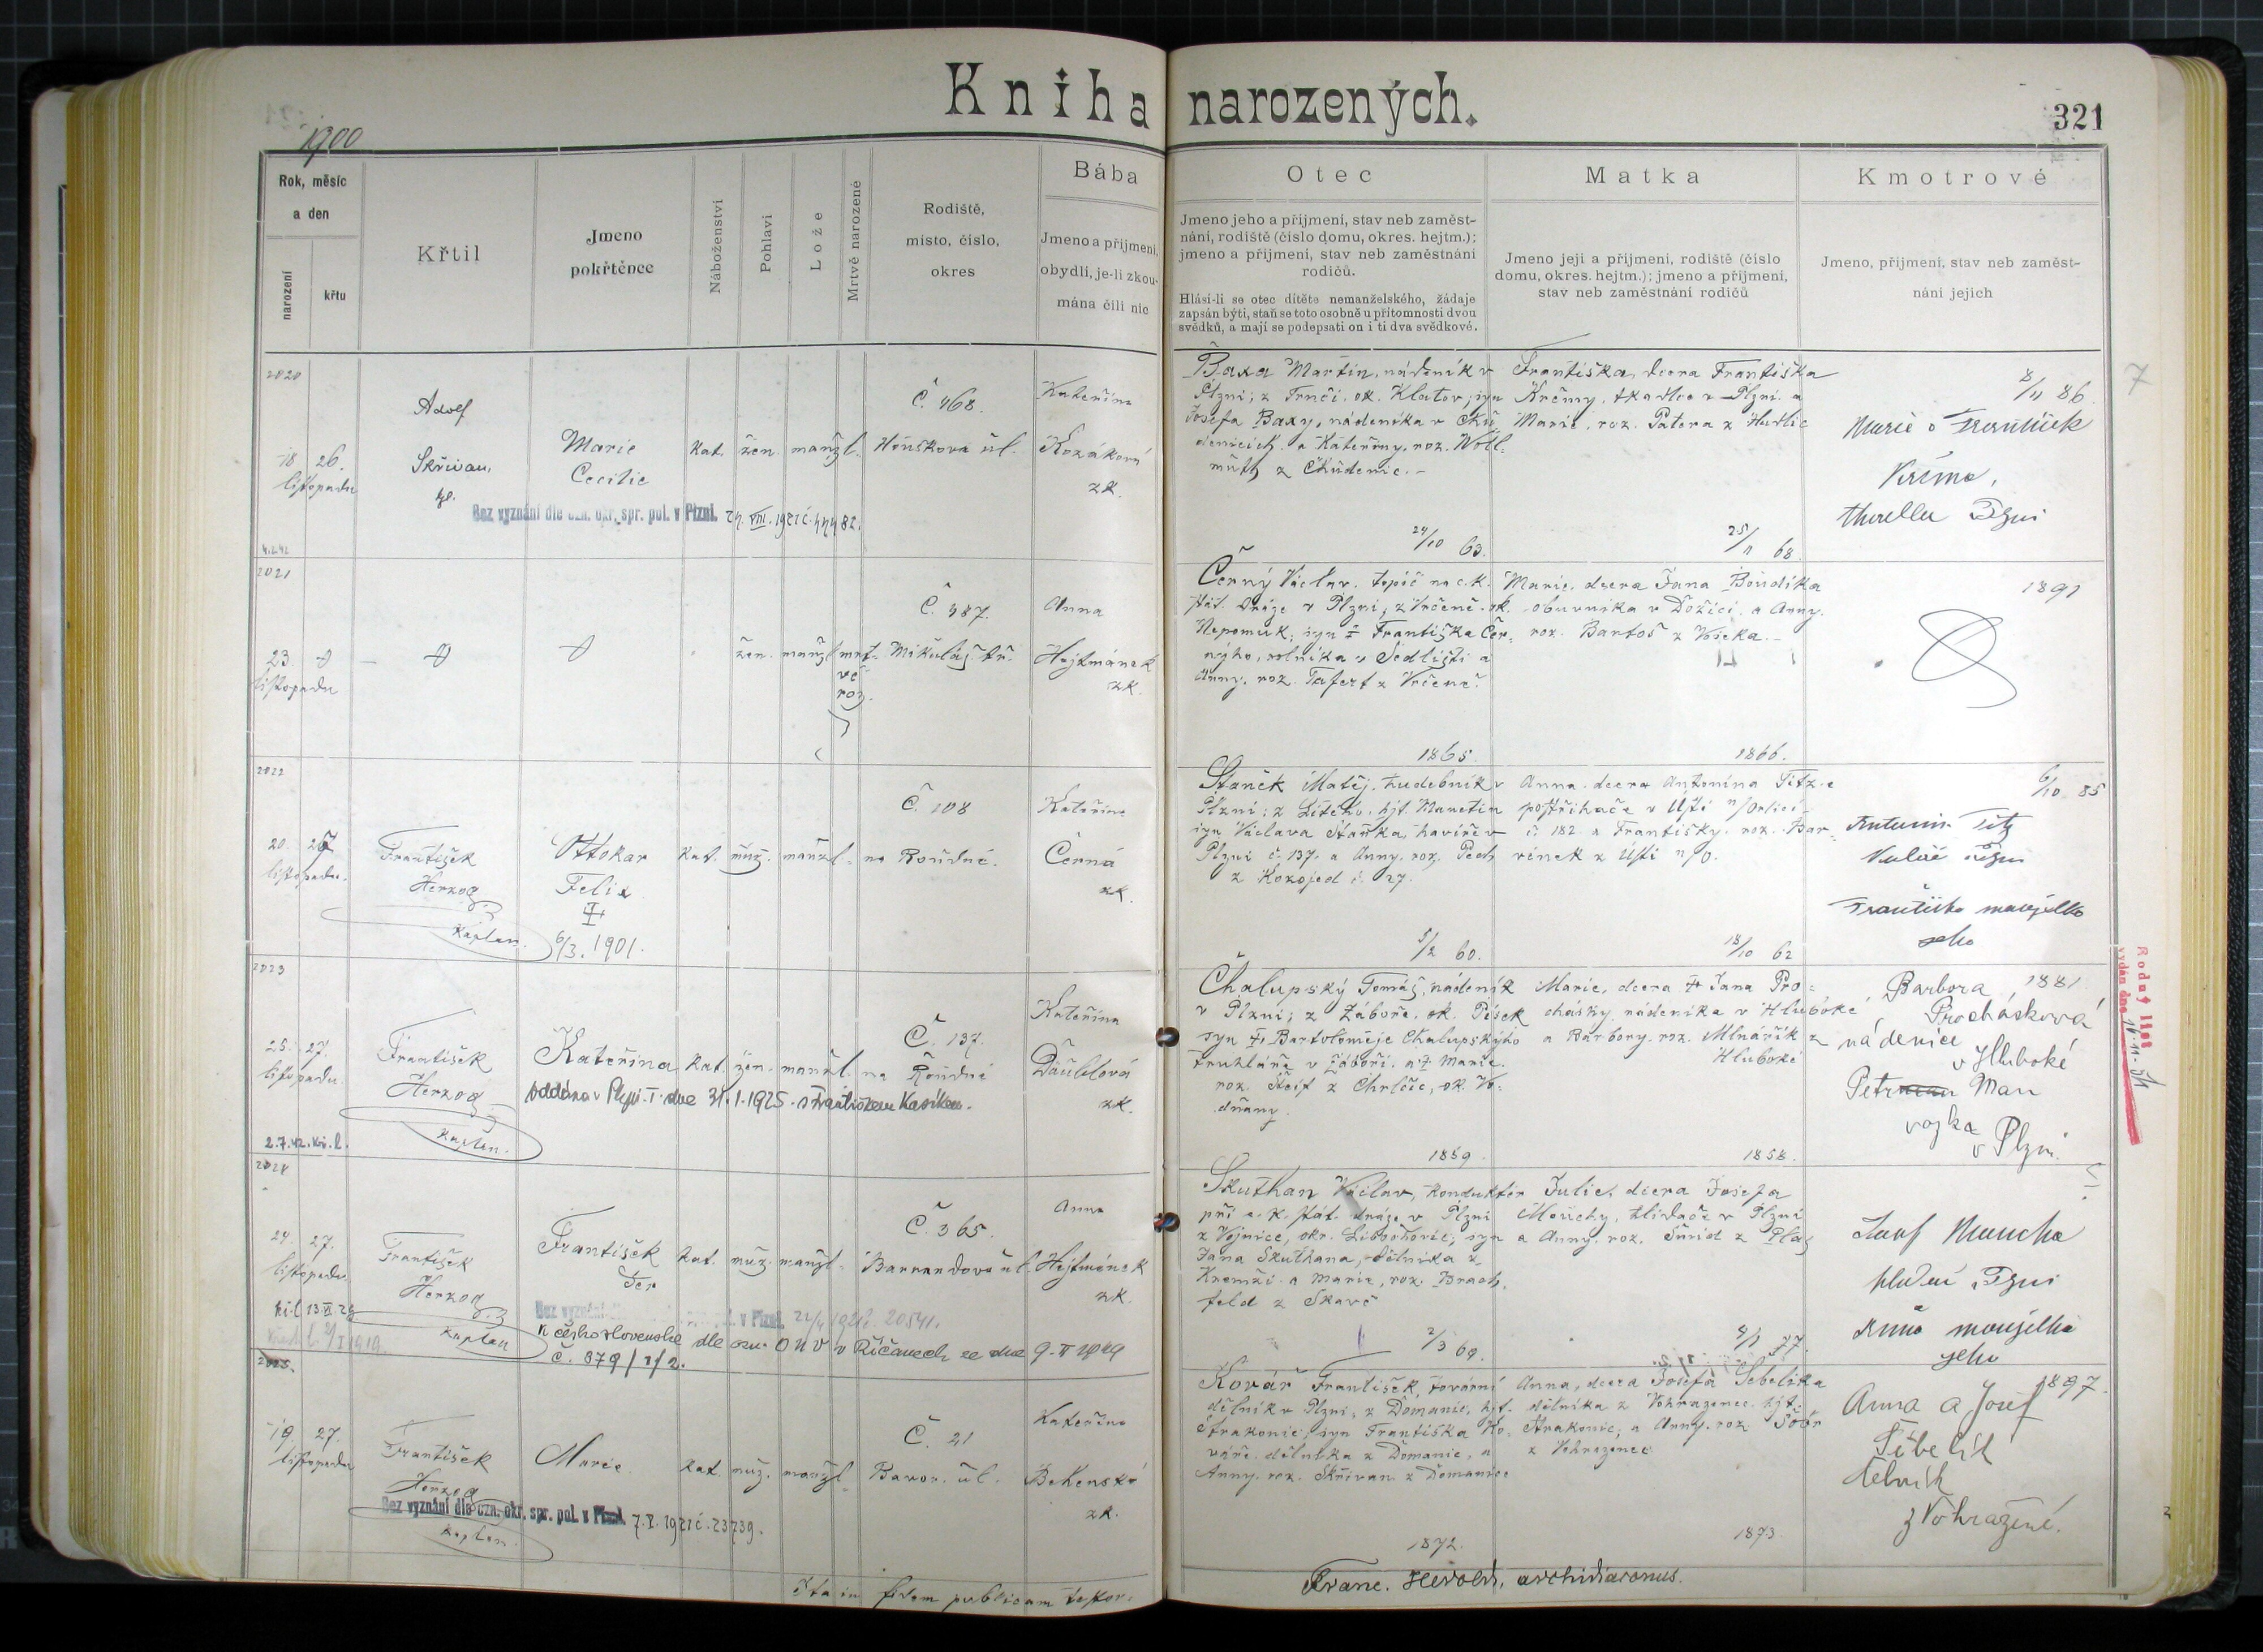 Kniha narozených.
321
1900
Rok, měsíc
a den
narození
křtu
Křtil
Jmeno
pokřtěnce
Náboženství
Pohlaví
Lože
Mrtvě narozené
Rodiště,
místo, číslo,
okres
Bába
Jmeno a příjmení,
obydlí, je-li zkou-
mána čili nic
Otec
Jmeno jeho a příjmení, stav neb zaměst-
nání, rodiště (číslo domu, okres. hejtm.);
jmeno a příjmení, stav neb zaměstnání
rodičů.
Hlásí-li se otec dítěte nemanželského, žádaje
zapsán býti, staň se toto osobně u přítomnosti dvou
svědků, a mají se podepsati on i ti dva svědkové.
Matka
Jmeno její a příjmení, rodiště (číslo
domu, okres. hejtm.); jmeno a příjmení,
stav neb zaměstnání rodičů
Kmotrové
Jmeno, příjmení, stav neb zaměst-
nání jejich
2020
18 26.
listopadu
Adolf
Skřivan,
Marie
Cecilie
kat. žen. manžl.
Č. 468.
Houškova ul.
Kateřina
Kozáková
zk.
Bez vyznání dle ozn. okr. spr. pol. v Plzni.
4.2.42
Baxa Martin, nádeník v
Plzni; z Trnčí, ok. Klatov; syn
Josefa Baxy, nádeníka v Chu-
denicích a Kateřiny, roz. Woll-
muth z Chudenic.-
24/10 63.
Františka, dcera Františka
Křčmy, tkadlce v Plzni a
Marie, roz. Patera z Hudlic
25/1 68.
8/11 86.
Marie a František
Křčma,
Plzni
7
2021
23.
listopadu
žen. manžl. mrt-
vě
roz.
Č. 487.
Mikuláš. tř.
Anna
Hejtmánek
zk.
Černý Václav, topič na c.k.
stát. dráze v Plzni, z Vrčeně, ok.
Nepomuk; syn Františka Čer-
ného, rolníka v Sedlišti a
Anny, roz. Tafert z Vrčeně.
1865.
Marie, dcera Jana Boudíka
obuvníka v Dožicí, a Anny,
roz. Bartoš z Vóseka.-
1866.
1891
2022
20. 26
listopadu.
František
Herzog
kaplan.
Ottokar
Felix
6/3. 1901.
kat. muž. manžl.
Č. 108
na Roudné.
Kateřina
Černá
zk.
Staněk Matěj, hudebník v
Plzni; z Lítého, hjt. Manetín
syn Václava Staňka, havíře v
Plzni č. 137. a Anny, roz. Pech
z Kozojed č. 27.
5/2 60.
Anna, dcera Antonína Titz-e
postřihače v Ústí n/Orlicí
č. 182 a Františky, roz. Bar-
vínek z Ústí n/O.
18/10 62
6/10 85
Antonín Titz
Plzni
Františka manželka
jeho
2023
25. 27.
listopadu.
František
Herzog
kaplan.
Kateřina
kat. žen. manžl.
oddána v Plzni I. dne 31.1.1925 s Františkem Kasíkem.
Č. 137.
na Roudné
Kateřina
Däublová
zk.
2.7.42.
Chalupský Tomáš, nádeník
v Plzni; z Záboře, ok. Písek
syn Bartoloměje Chalupského
truhláře v Záboří a Marie,
roz. Šteif z Chrlčic, ok. Vo-
dňany.
1859.
Marie, dcera Jana Pro-
chásky, nádeníka v Hluboké
a Barbory, roz. Mlnářík z
Hluboké
1858.
Barbora 1881.
Procházková
nádenice
v Hluboké
Petr Man
vojka
v Plzni.
Rodný list
vydán dne
2024
24. 27.
listopadu.
František
Herzog
kaplan
František
Ser
kat. muž. manžl.
Č. 365.
Barrandova ul.
Anna
Hejtmánek
zk.
Bez vyznání v Plzni. 22/4 1921 č. 20541.
k československé dle ozn. ONV v Říčanech ze dne 9. II 1949
č. 379/1/2.
Skuthan Václav, konduktér
při c.k. stát. dráze v Plzni
z Vojnice, okr. Libochovic; syn
Jana Skuthana, dělníka z
Kremží a Marie, roz. Brach-
feld z Skavč
2/3 69.
Julie, dcera Josefa
Mouchy, hlídače v Plzni
a Anny, roz. Šmíd z Plas
4/1 77.
Josef Moucha
Plzni
Anna manželka
jeho
2025.
19. 27.
listopadu
František
Herzog
kaplan.
Marie
kat. muž. manžl.
Č. 21
Bavor. ul.
Kateřina
Bekenská
zk.
Bez vyznání dle ozn. okr. spr. pol. v Plzni. 7.V. 1921 č. 23739.
Kovář František, tovární
dělník v Plzni, z Domanic, hjt.
Strakonic, syn Františka Ko-
váře, dělníka z Domanic, a
Anny, roz. Skřivan z Domanic
1872.
Anna, dcera Josefa Šebelíka
dělníka z Vohrazenec, hjt.
Strakonic, a Anny, roz. Sobr
z Vohrazenec
1873
1897.
Anna a Josef
Šebelík
dělník
z Vohrazené.
Ita in fidem publicam testor.
Franc. Herold, archidiaconus.